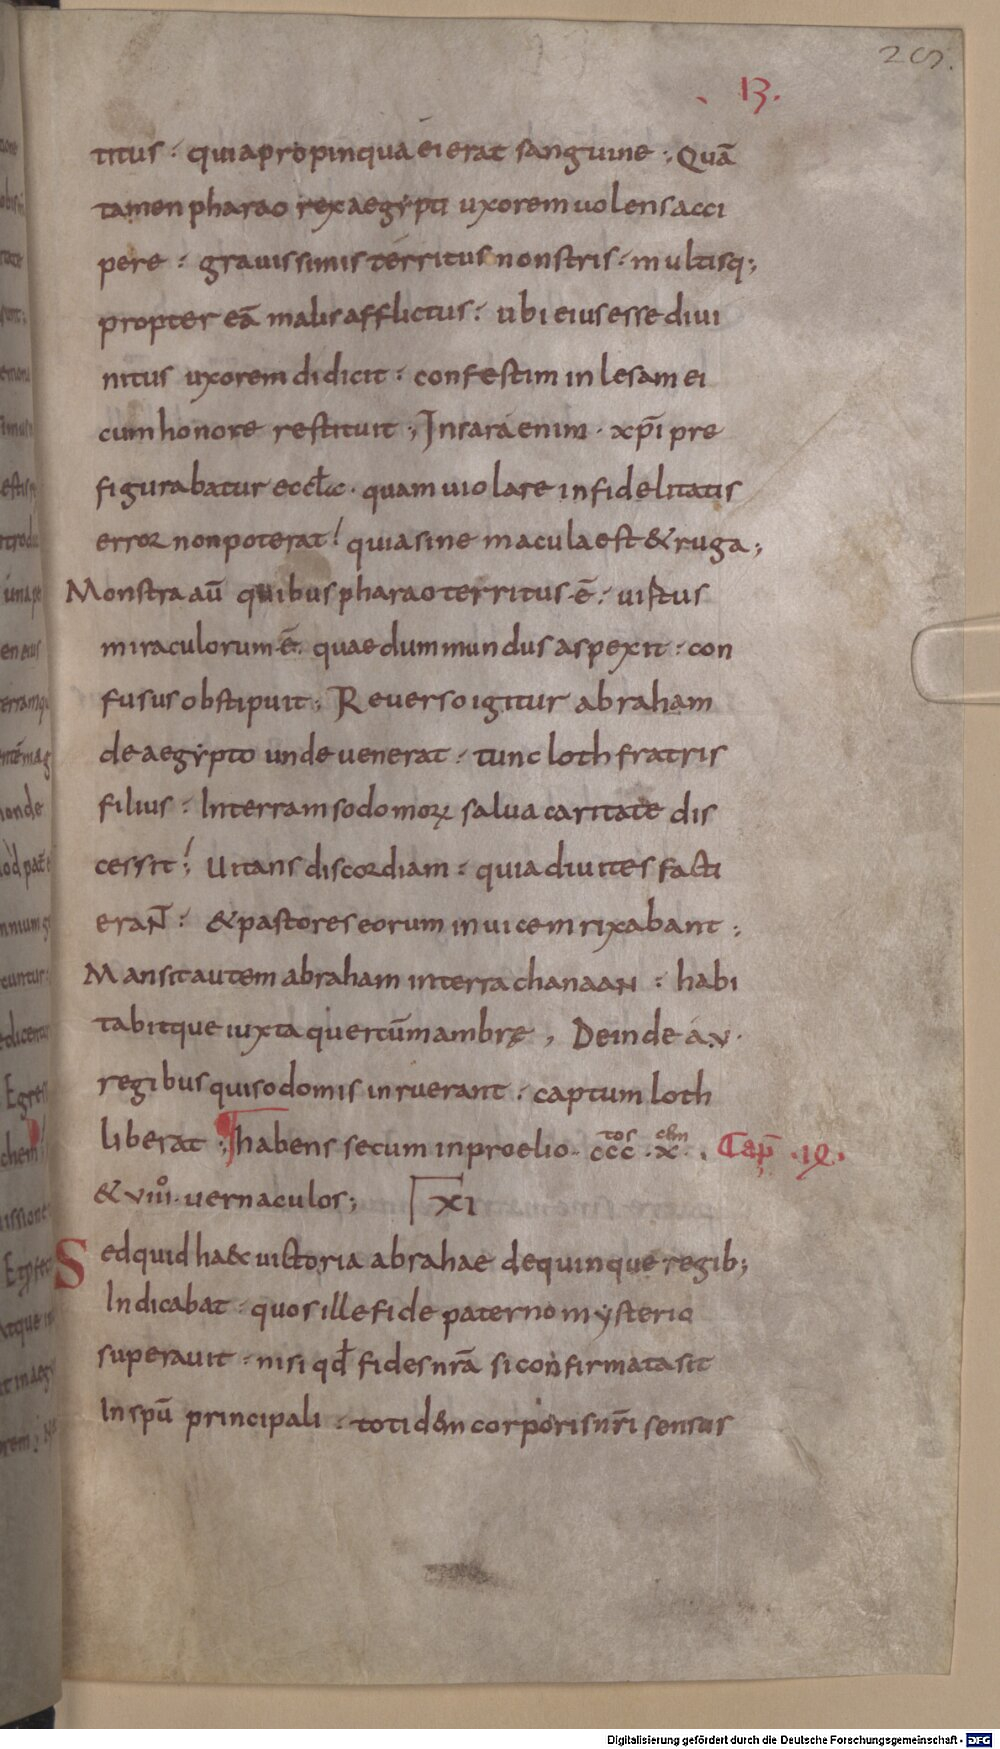 25.
13.
titus · quia propinqua ei erat sanguine ; Quā
tamen pharao rex aegypti uxorem uolens acci
pere · grauissimis territus monstris · multisq;
propter eā malis afflictus · ubi eius esse diui
nitus uxorem didicit · confestim inlesam ei
cum honore restituit ; In sara enim · xp̄i pre
figurabatur eccl̄a · quam uiolare infidelitatis
error non poterat! quia sine macula est & ruga ;
Monstra aū quibus pharao territus ·ē· uirtus
miraculorum ·ē· quae dum mundus aspexit · con
fusus obstipuit ; Reuerso igitur abraham
de aegypto unde uenerat · tunc loth fratris
filius · In terram sodomoꝝ salua caritate dis
cessit ; Uitans discordiam · quia diuites facti
eraN̄ · & pastores eorum inuicem rixabant ;
Mansit autem abraham in terra chanaan · habi
tabitque iuxta quercū mambrę , Deinde a ·v·
regibus qui sodomis inruerant · captum loth
liberat ; habens secum in proelio · ccc tos · x · Cap̄ · IX ·
& viiiı̊ · uernaculos ; XI
Sed quid haec uictoria abrahae de quinque regib;
Indicabat · quos ille fide paterno mysterio
superauit · nisi qd̄ fides nr̄a si confirmata sit
In spū principali · totidem corporis nr̄i sensus
Digitalisierung gefördert durch die Deutsche Forschungsgemeinschaft - DFG